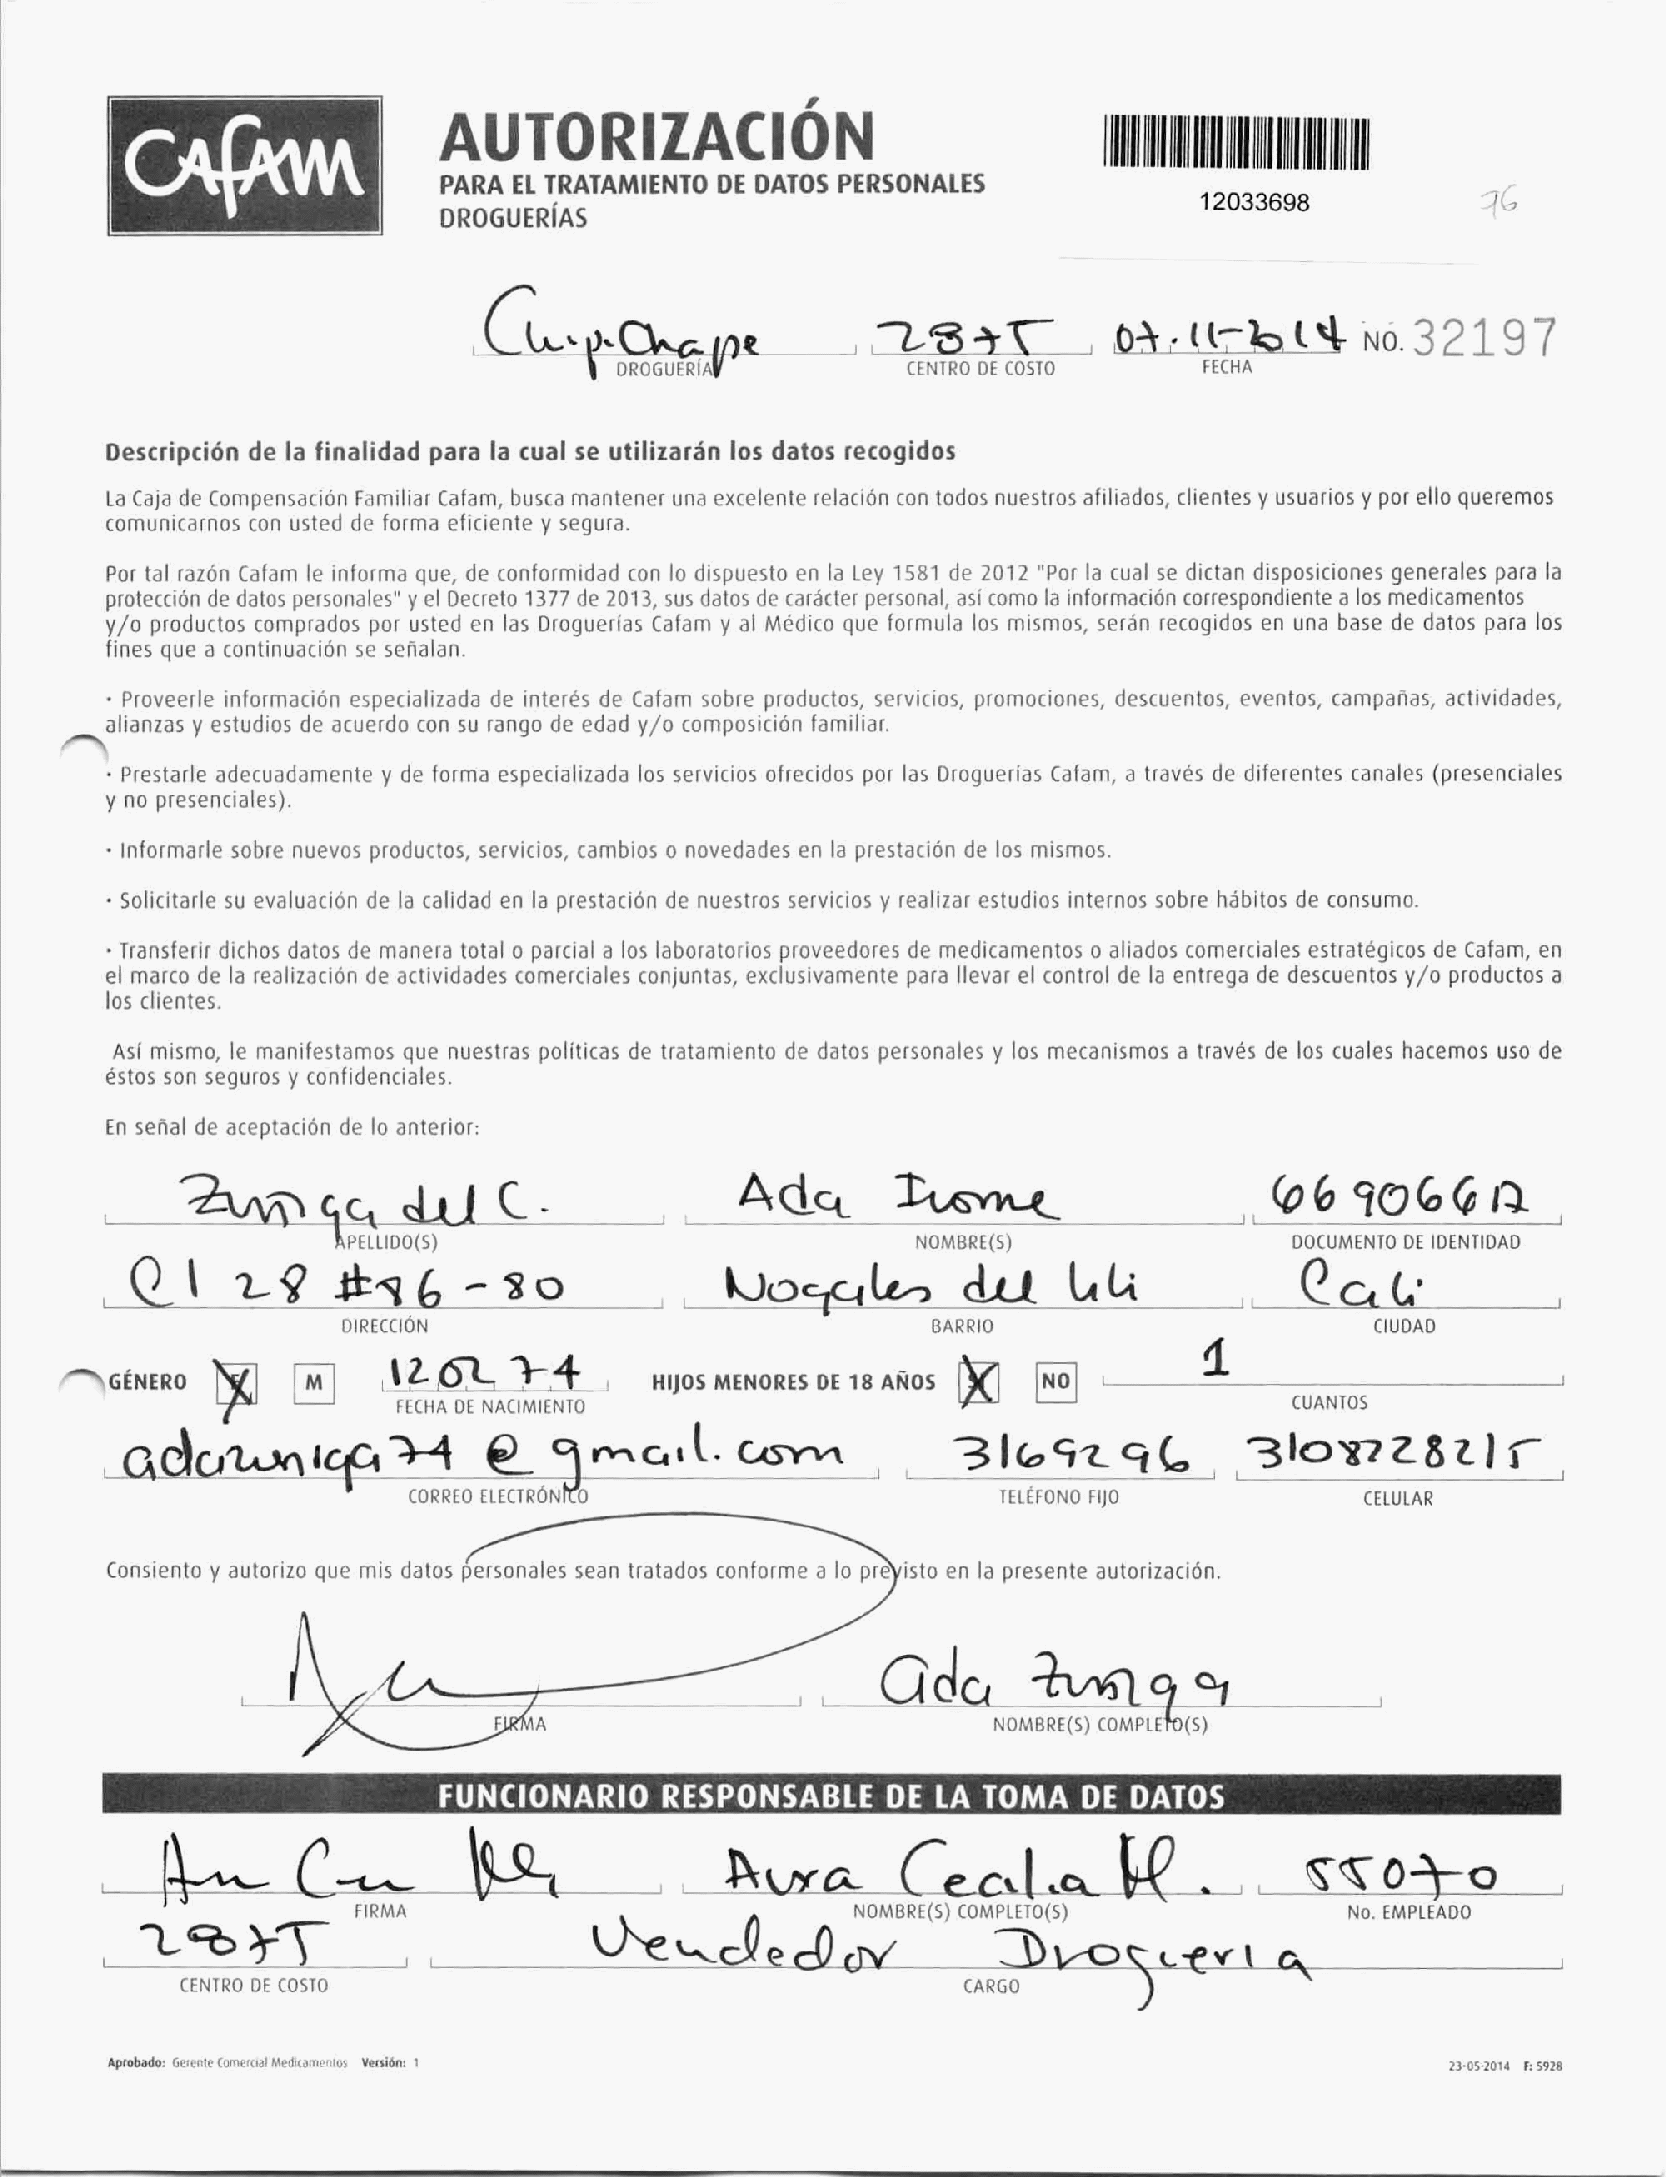 CAFAM
AUTORIZACIÓN
PARA EL TRATAMIENTO DE DATOS PERSONALES
DROGUERÍAS
12033698
76
ChipiChape 2875 07.11-2014 NO. 32197
DROGUERÍA CENTRO DE COSTO FECHA
Descripción de la finalidad para la cual se utilizarán los datos recogidos
La Caja de Compensación Familiar Cafam, busca mantener una excelente relación con todos nuestros afiliados, clientes y usuarios y por ello queremos
comunicarnos con usted de forma eficiente y segura.
Por tal razón Cafam le informa que, de conformidad con lo dispuesto en la Ley 1581 de 2012 "Por la cual se dictan disposiciones generales para la
protección de datos personales" y el Decreto 1377 de 2013, sus datos de carácter personal, así como la información correspondiente a los medicamentos
y/o productos comprados por usted en las Droguerías Cafam y al Médico que formula los mismos, serán recogidos en una base de datos para los
fines que a continuación se señalan.
· Proveerle información especializada de interés de Cafam sobre productos, servicios, promociones, descuentos, eventos, campañas, actividades,
alianzas y estudios de acuerdo con su rango de edad y/o composición familiar.
· Prestarle adecuadamente y de forma especializada los servicios ofrecidos por las Droguerías Cafam, a través de diferentes canales (presenciales
y no presenciales).
· Informarle sobre nuevos productos, servicios, cambios o novedades en la prestación de los mismos.
· Solicitarle su evaluación de la calidad en la prestación de nuestros servicios y realizar estudios internos sobre hábitos de consumo.
· Transferir dichos datos de manera total o parcial a los laboratorios proveedores de medicamentos o aliados comerciales estratégicos de Cafam, en
el marco de la realización de actividades comerciales conjuntas, exclusivamente para llevar el control de la entrega de descuentos y/o productos a
los clientes.
Así mismo, le manifestamos que nuestras políticas de tratamiento de datos personales y los mecanismos a través de los cuales hacemos uso de
éstos son seguros y confidenciales.
En señal de aceptación de lo anterior:
Zuniga del C. Ada
APELLIDO(S) NOMBRE(S) DOCUMENTO DE IDENTIDAD
Cl 28 #86-80 Nogales del lili Cali
DIRECCIÓN BARRIO CIUDAD
GÉNERO X M 120274 HIJOS MENORES DE 18 AÑOS X NO 1
FECHA DE NACIMIENTO CUANTOS
adazuniga74@gmail.com 3169296 3108728215
CORREO ELECTRÓNICO TELÉFONO FIJO CELULAR
Consiento y autorizo que mis datos personales sean tratados conforme a lo previsto en la presente autorización.
ada zuniga
FIRMA NOMBRE(S) COMPLETO(S)
FUNCIONARIO RESPONSABLE DE LA TOMA DE DATOS
Aura Cecilia M. 55070
FIRMA NOMBRE(S) COMPLETO(S) No. EMPLEADO
2875 Vendedor Drogueria
CENTRO DE COSTO CARGO
Aprobado: Gerente Comercial Medicamentos Versión: 1 23-05-2014 F: 5928